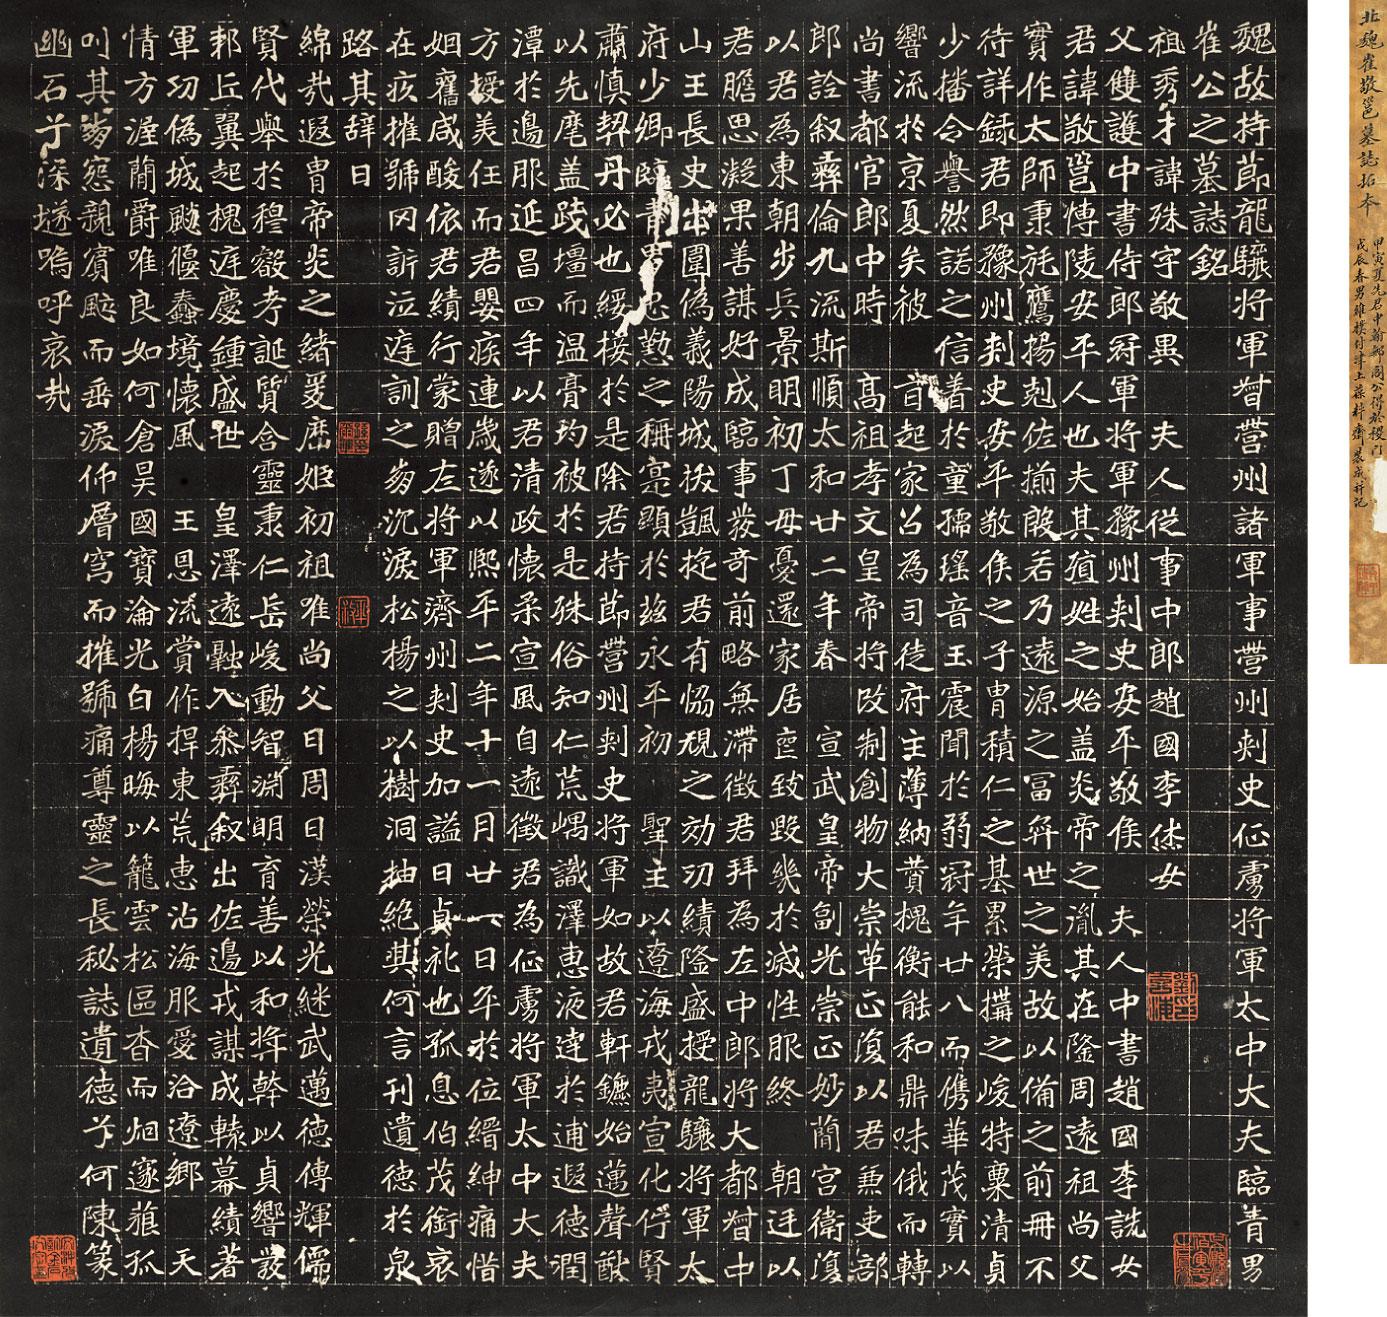 魏故持節龍驤將軍督營州諸軍事營州刺史征虜將軍太中大夫臨青男
崔公之墓誌銘
祖秀才諱殊字敬異　夫人從事中郎趙國李烋女
父雙護中書侍郎冠軍將軍豫州刺史安平敬侯　夫人中書趙國李詵女
君諱敬邕博陵安平人也夫其殖姓之始蓋炎帝之胤其在隆周遠祖尚父
實作太師秉旄鷹揚剋佐揃殷若乃遠源之富弈世之美故以備之前冊不
待詳錄君即豫州刺史安平敬侯之子胄積仁之基累榮構之峻特稟清貞
少播令譽然諾之信著於童孺瑤音玉震聞於弱冠年廿八而儁華茂實以
響流於京夏矣被　旨起家召為司徒府主薄納贊槐衡能和鼎味俄而轉
尚書都官郎中時　高祖孝文皇帝將改制創物大崇革正復以君兼吏部
郎詮敘彝倫九流斯順太和廿二年春　宣武皇帝副光崇正妙簡宮衛復
以君為東朝步兵景明初丁母憂還家居喪致毀幾於滅性服終　朝廷以
君膽思凝果善謀好成臨事發奇前略無滯徵君拜為左中郎將大都督中
山王長史出圍偽義陽城拔凱旋君有協規之効功績隆盛授龍驤將軍太
府少卿臨青男忠懃之稱寔顯於茲永平初　聖主以遼海戎夷宣化佇賢
肅慎契丹必也綏接於是除君持節營州刺史將軍如故君軒鑣始邁聲猷
以先麾蓋踐壃而温膏均被於是殊俗知仁荒嵎識澤惠液達於逋遐德潤
潭於邊服延昌四年以君清政懷柔宣風自遠徵君為征虜將軍太中大夫
方授美任而君嬰疾連歲遂以熙平二年十一月廿一日卒於位縉紳痛惜
姻舊咸酸依君績行蒙贈左將軍濟州刺史加謚曰貞礼也孤息伯茂銜哀
在疚摧號罔訴泣庭訓之崩沉淚松楊之以樹洞抽絕其何言刊遺德於泉
路其辞曰
綿哉遐胄帝炎之緒爰歷姬初祖唯尚父曰周曰漢榮光継武邁德傳輝儒
賢代舉於穆叡考誕質含靈秉仁岳峻動智淵明育善以和獎幹以貞響發
邦丘翼起槐庭慶鍾盛世　皇澤遠融入參彝敘出佐邊戎謀成轅幕績著
軍功偽城飈偃蠢境懷風　王恩流賞作捍東荒惠沾海服愛洽遼鄉　天
情方渥簡爵唯良如何倉昊國寶淪光白楊晦以籠雲松區杳而烟邃藐孤
叫其崩怨親賓颰而垂淚仰層穹而摧號痛尊靈之長秘誌遺德兮何陳篆
幽石兮深墜嗚呼哀哉
北魏崔敬邕墓誌拓本
甲寅夏先君中翰郵閣公得於稷門
戊辰春男雒摸付津上葆粹齋裝成并記